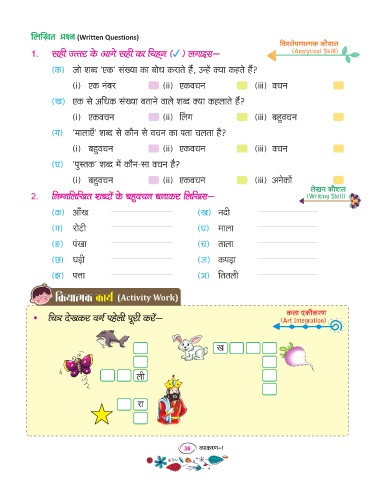 लिखित प्रश्न (Written Questions)
विश्लेषणात्मक कौशल
(Analytical Skill)
1. सही उत्तर के आगे सही का चिह्न (✓) लगाइए–
(क) जो शब्द 'एक' संख्या का बोध कराते हैं, उन्हें क्या कहते हैं?
(i) एक नंबर (ii) एकवचन (iii) वचन
(ख) एक से अधिक संख्या बताने वाले शब्द क्या कहलाते हैं?
(i) एकवचन (ii) लिंग (iii) बहुवचन
(ग) 'मालाएँ' शब्द से कौन से वचन का पता चलता है?
(i) बहुवचन (ii) एकवचन (iii) वचन
(घ) 'पुस्तक' शब्द में कौन-सा वचन है?
(i) बहुवचन (ii) एकवचन (iii) अनेकों
लेखन कौशल
(Writing Skill)
2. निम्नलिखित शब्दों के बहुवचन बनाकर लिखिए–
(क) आँख (ख) नदी
(ग) रोटी (घ) माला
(ङ) पंखा (च) ताला
(छ) घड़ी (ज) कपड़ा
(झ) पत्ता (ञ) तितली
क्रियात्मक कार्य (Activity Work)
कला एकीकरण
(Art Integration)
• चित्र देखकर वर्ग पहेली पूरी करें–
ख
ली
रा
36 व्याकरण-1